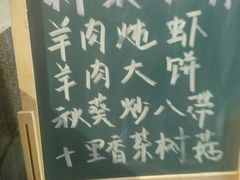 羊肉炖虾
羊肉大饼
秋葵炒八带
十里香茶树菇